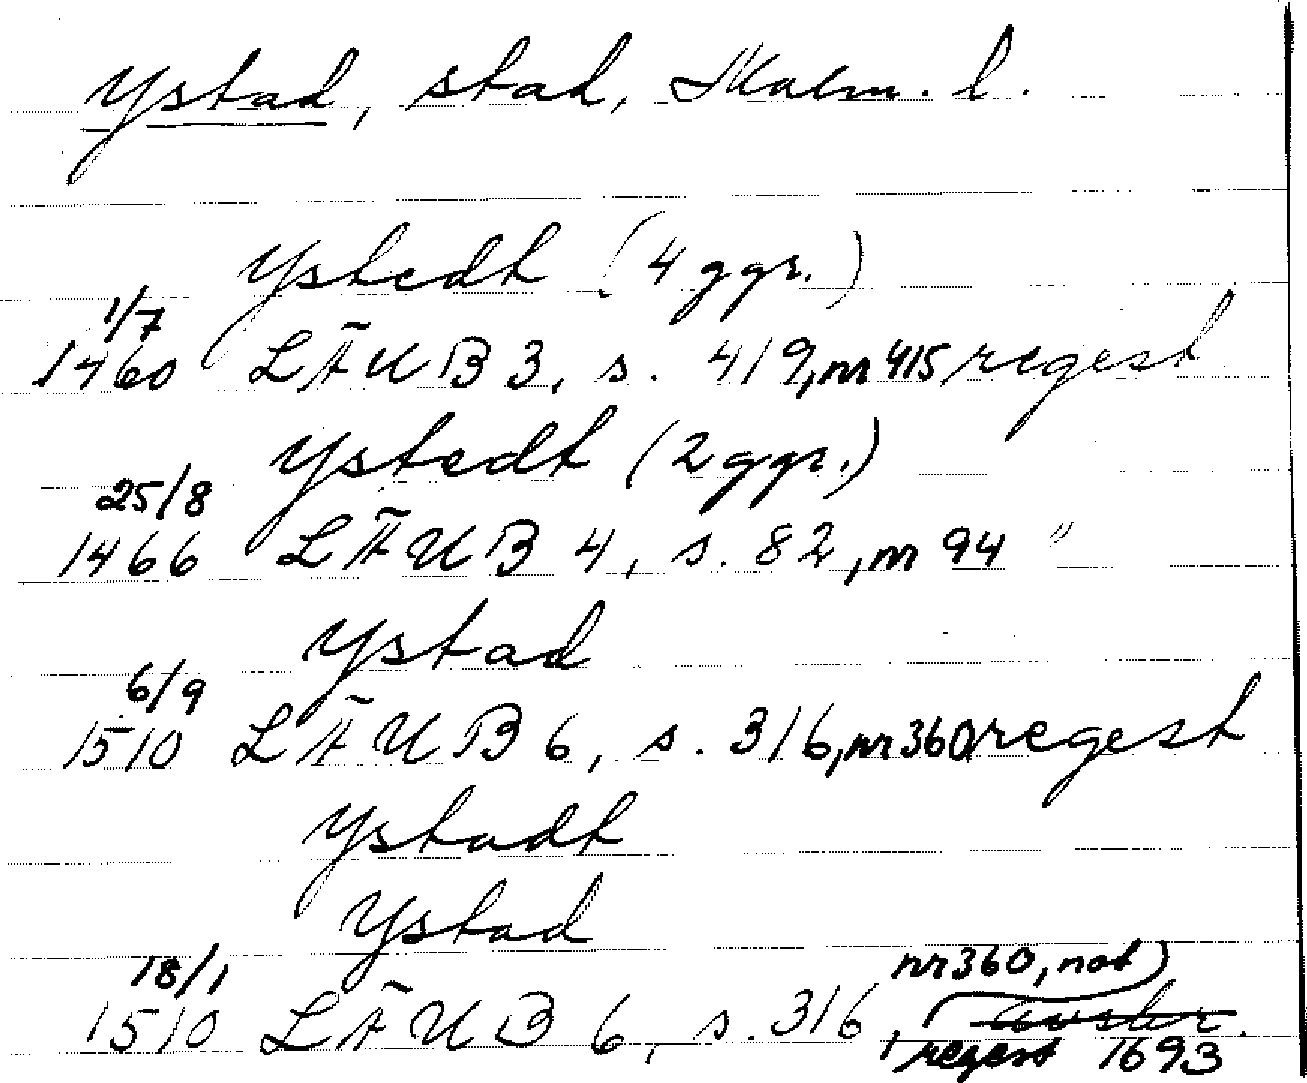 Ystad, stad, Malm. l.
Ystedt (4 ggr.)
1/7
1460 LÄUB 3, s. 419, nr 415 regest
Ystedt (2 ggr.)
25/8
1466 LÄUB 4, s. 82, nr 94 "
Ystad
6/9
1510 LÄUB 6, s. 316, nr 360 regest
Ystadt
Ystad
18/1 nr 360, not)
1510 LÄUB 6, s. 316, avskr.
regest 1693